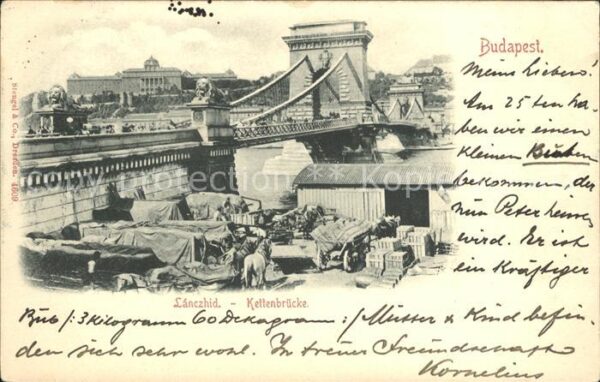 Budapest.
Meine Lieben!
Am 25ten ha,
ben wir einen
kleinen Buben
bekommen, der
nun Peter heissen
wird. Er ist
ein kräftiger
Bub /: 3 kilogramm 60 Dekagramm :/ Mutter & Kind befin,
den sich sehr wohl. In treuer Freundschaft
Kornelius
Lánczhid. - Kettenbrücke.
Stengel & Co., Dresden. 4639
copyright protection Kopierschutz